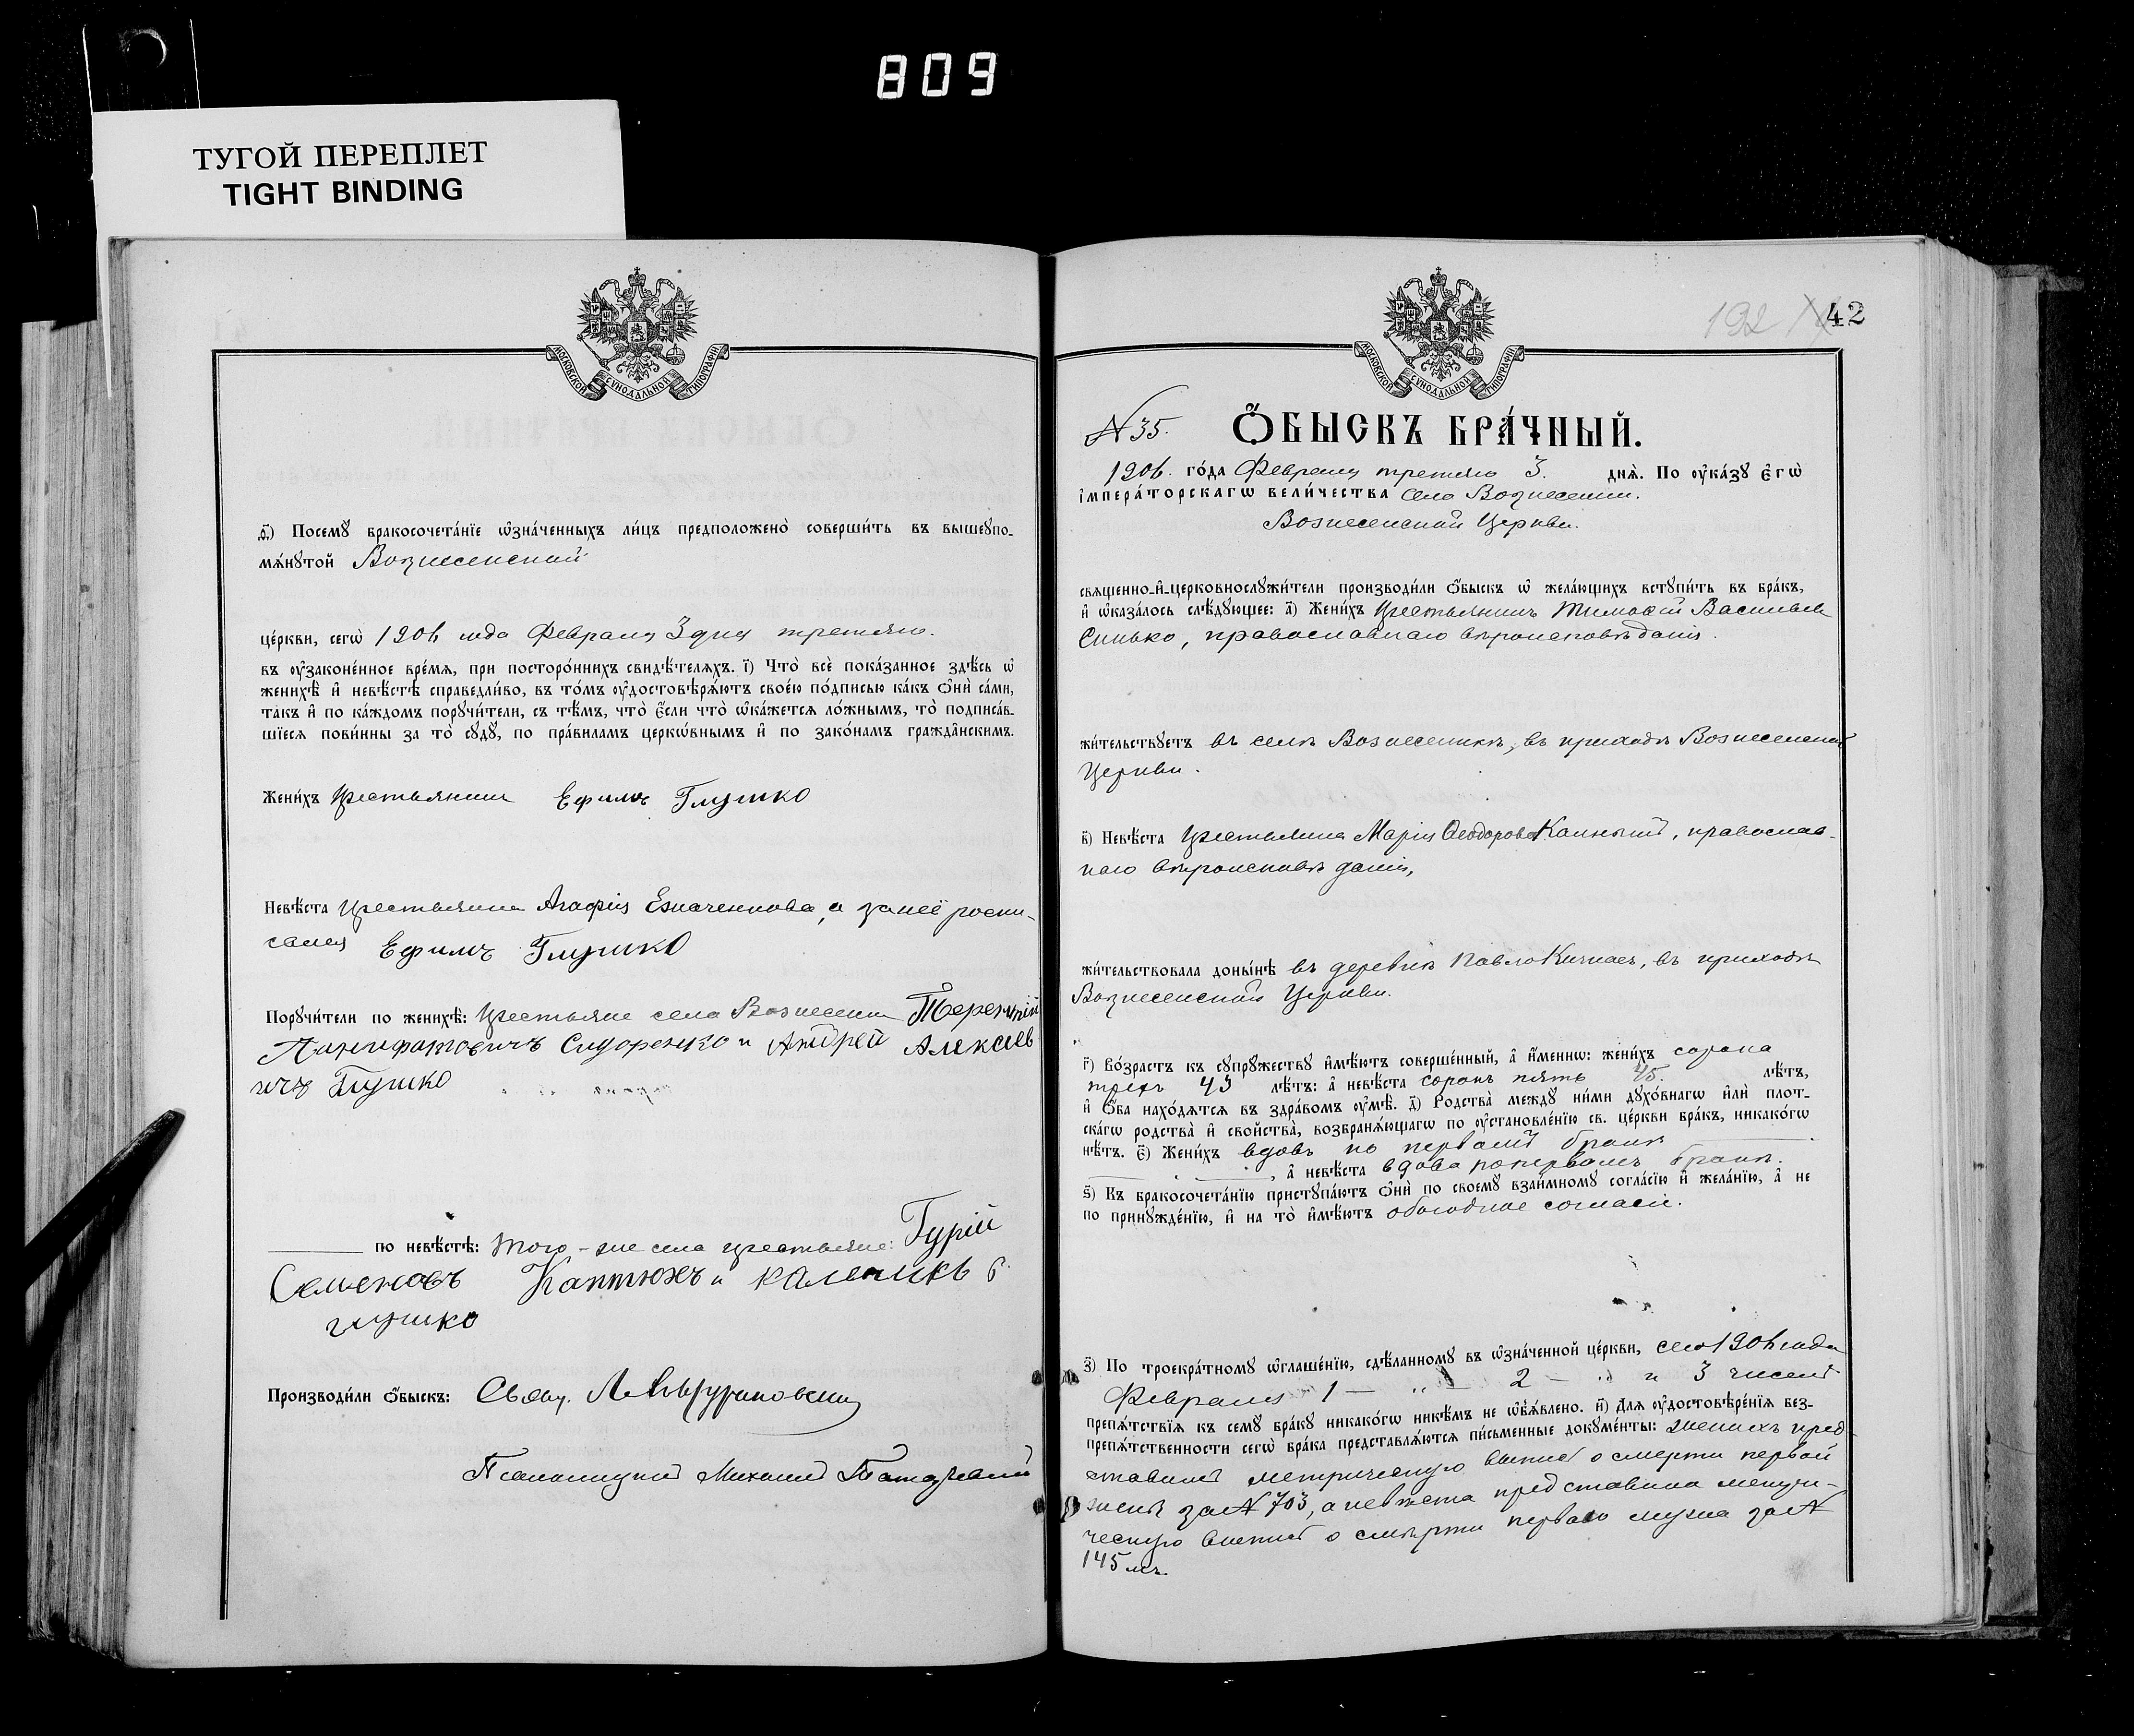 809
ТУГОЙ ПЕРЕПЛЕТ
TIGHT BINDING
МОСКОВСКОЙ СѴНОДАЛЬНОЙ ТИПОГРАФІИ
ѳ҃) Посемꙋ бракосочета́нїе ѡ҆зна́ченныхъ ли́цъ предположено̀ соверши́ть въ вышеꙋпо-
мѧ́нꙋтой Вознесенской
це́ркви, сегѡ̀ 1906 года Февраля 3 дня третьяго.
въ ᲂу҆законе́нное вре́мѧ, при посторо́ннихъ свидѣ́телѧхъ. і҃) Что̀ всѐ пока́занное здѣ́сь ѡ҆
женихѣ̀ и҆ невѣ́стѣ справедли́во, въ то́мъ ᲂу҆достовѣрѧ́ютъ свое́ю по́дписью ка́къ ѻ҆нѝ са́ми,
та́къ и҆ по ка́ждомъ порꙋчи́тели, съ тѣ́мъ, что̀ є҆́сли что̀ ѡ҆ка́жетсѧ ло́жнымъ, то̀ подписа́в-
шїесѧ пови́нны за то̀ сꙋдꙋ̀, по пра́виламъ церкѡ́внымъ и҆ по зако́намъ гражда̑нскимъ.
Жени́хъ Крестьянинъ Ефимъ Глушко
Невѣ́ста Крестьянка Агафія Езначенкова, а за нее роспи-
сался Ефимъ Глушко
Порꙋчи́тели по женихѣ̀: Крестьяне села Вознесенки Терентій
Сидоренко и Андрей Алексѣев
ичъ Глушко
по невѣ́стѣ: того-же села крестьяне: Гурій
Семеновъ Каптюхъ и Каленикъ Г
глушко
Производи́ли ѻ҆́быскъ: Свящ.
Псаломщикъ Михаилъ
192 42
МОСКОВСКОЙ СѴНОДАЛЬНОЙ ТИПОГРАФІИ
N 35. Ѻ҆́БЫСКЪ БРА́ЧНЫЙ.
1906. го́да Февраля третьяго 3. днѧ̀. По ᲂу҆ка́зꙋ є҆гѡ̀
і҆мпера́торскагѡ вели́чества села Вознесенки.
Вознесенской Церкви.
свѧщенно-и҆-церковнослꙋжи́тели производи́ли ѻ҆́быскъ ѡ҆ жела́ющихъ встꙋпи́ть въ бра́къ,
и҆ ѡ҆каза́лось слѣ́дꙋющее: а҃) Жени́хъ Крестьянинъ Тимофій Васильев
Синько, православнаго вѣроисповѣданія.
жи́тельствꙋетъ въ селѣ Вознесенкѣ, въ приходѣ Вознесенской
Церкви.
в҃) Невѣ́ста Крестьянка Марія Ѳеодорова, православ-
наго вѣроисповѣданія,
жи́тельствовала доны́нѣ въ деревнѣ ПавлоКичкасъ, въ приходѣ
Вознесенской Церкви.
г҃) Во́зрастъ къ сꙋпрꙋ́жествꙋ и҆мѣ́ютъ соверше́нный, а҆ и҆́меннѡ: жени́хъ сорока
трехъ 43 лѣ́тъ: а҆ невѣ́ста сорокъ пять 45. лѣ́тъ,
и҆ ѻ҆́ба нахо́дѧтсѧ въ здра́вомъ ᲂу҆мѣ̀. д҃) Родства̀ междꙋ ни́ми дꙋхо́внагѡ и҆лѝ плот-
ска́гѡ родства̀ и҆ сво́йства, возбранѧ́ющагѡ по ᲂу҆становле́нїю св. це́ркви бра́къ, никако́гѡ
нѣ́тъ. є҃) Жени́хъ вдовъ по первомъ бракѣ
, а҆ невѣ́ста вдова по первомъ бракѣ.
ѕ҃) Къ бракосочета́нїю пристꙋпа́ютъ ѻ҆нѝ по своемꙋ̀ взаи́мномꙋ согла́сїю и҆ жела́нїю, а҆ не
по принꙋжде́нїю, и҆ на то̀ и҆мѣ́ютъ обоюдное согласіе.
з҃) По троекра́тномꙋ ѡ҆глаше́нїю, сдѣ́ланномꙋ въ ѡ҆зна́ченной це́ркви, сего 1906 года
Февраля 1 — „ — 2 — „ и 3 числъ
препѧ́тствїѧ къ семꙋ̀ бра́кꙋ никако́гѡ никѣ́мъ не ѡ҆б̾ѧ́влено. и҃) Длѧ ᲂу҆достовѣре́нїѧ без-
препѧ́тственности сегѡ̀ бра́ка представлѧ́ютсѧ пи́сьменные докꙋме́нты: женихъ пред-
ставилъ метрическую выпись о смерти первой
жены за N 703, а невѣста представила метри-
ческую выпись о смерти перваго мужа за N
145 мъ